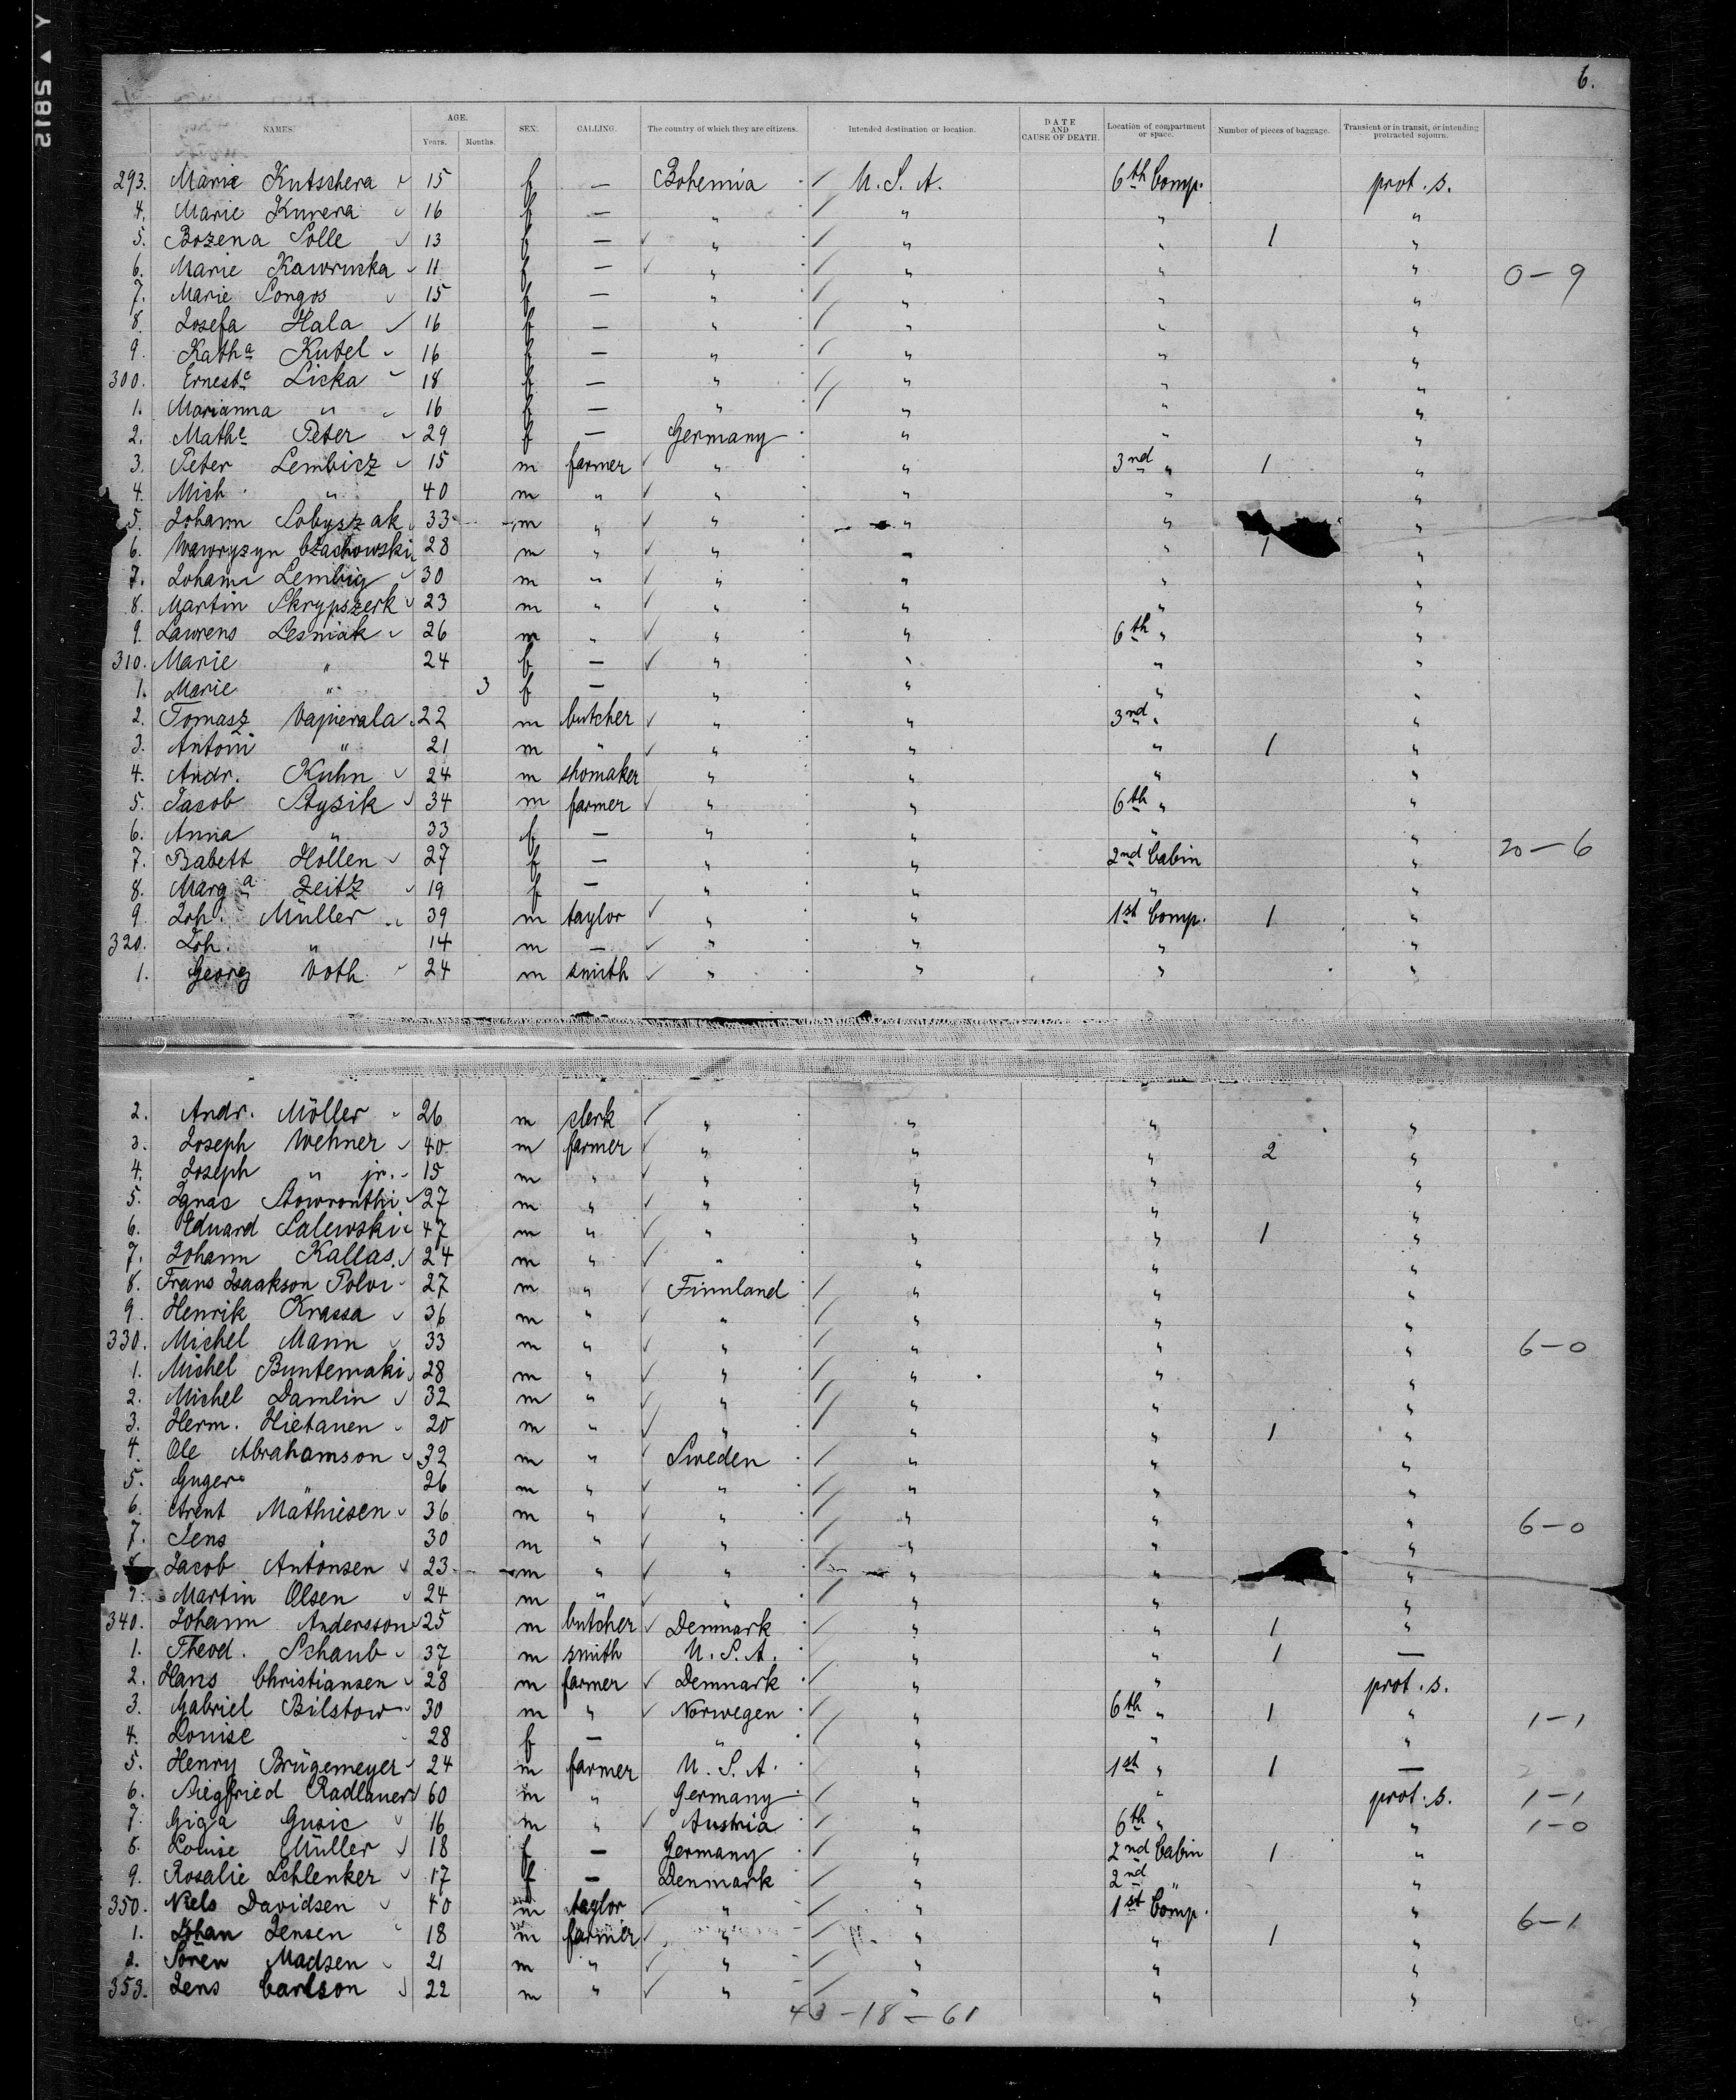 6.
NAMES. AGE. Years. Months. SEX. CALLING. The country of which they are citizens. Intended destination or location. DATE AND CAUSE OF DEATH. Location of compartment or space. Number of pieces of baggage. Transient or in transit, or intending protracted sojourn.
293. Marie Kutschera 15 f — Bohemia U. S. A. 6th Comp. prot. s.
4. Marie Kurera 16 f — " " " "
5. Bozena Solle 13 f — " " " 1 "
6. Marie Kawrucka 11 f — " " " " 0-9
7. Marie Songos 15 f — " " " "
8. Josefa Hala 16 f — " " " "
9. Katha Kutel 16 f — " " " "
300. Ernestc Licka 18 f — " " " "
1. Marianna " 16 f — " " " "
2. Mathe Peter 29 f — Germany " " "
3. Peter Lembicz 15 m farmer " " 3nd " 1 "
4. Mich. " 40 m " " " " "
5. Johann Sobyszak 33 m " " " " "
6. Wawryszyn Czachowski 28 m " " " " 1 "
7. Johann Lembig 30 m " " " " "
8. Martin Skrypszerk 23 m " " " " "
9. Lawrens Lesniak 26 m " " " 6th " "
310. Marie " 24 f — " " " "
1. Marie " 3 f — " " " "
2. Tomasz Vapierala 22 m butcher " " 3nd " "
3. Antoni " 21 m " " " " 1 "
4. Andr. Kuhn 24 m shomaker " " " "
5. Jacob Stysik 34 m farmer " " 6th " "
6. Anna " 33 f — " " " "
7. Babett Hollen 27 f — " " 2nd Cabin " 20-6
8. Marga Zeitz 19 f — " " " "
9. Joh. Müller 39 m taylor " " 1st Comp. 1 "
320. Joh. " 14 m — " " " "
1. Georg Voth 24 m smith " " " "
2. Andr. Möller 26 m clerk " " " "
3. Joseph Wehner 40 m farmer " " " 2 "
4. Joseph " jr. 15 m " " " " "
5. Ignas Stowronthi 27 m " " " " "
6. Eduard Salewski 47 m " " " " 1 "
7. Johann Kallas 24 m " " " " "
8. Frans Isaakson Polvi 27 m " Finnland " " "
9. Henrik Krassa 36 m " " " " "
330. Michel Mann 33 m " " " " " 6-0
1. Michel Buntemaki 28 m " " " " "
2. Michel Damlin 32 m " " " " "
3. Herm. Hietanen 20 m " " " " 1 "
4. Ole Abrahamson 32 m " Sweden " " "
5. Guger " 26 m " " " " "
6. Arent Mathiesen 36 m " " " " " 6-0
7. Jens " 30 m " " " " "
8. Jacob Antonsen 23 m " " " " "
9. Martin Olsen 24 m " " " " "
340. Johann Andersson 25 m butcher Denmark " " 1 "
1. Theod. Schaub 37 m smith U. S. A. " " 1 —
2. Hans Christiansen 28 m farmer Denmark " " prot. s.
3. Gabriel Bilstow 30 m " Norwegen " 6th " 1 " 1-1
4. Louise 28 f — " " " "
5. Henry Brügemeyer 24 m farmer U. S. A. " 1st " 1 —
6. Siegfried Radlauer 60 m " Germany " " prot. s. 1-1
7. Giga Gusic 16 m " Austria " 6th " " 1-0
8. Louise Müller 18 f — Germany " 2nd Cabin 1 "
9. Rosalie Schlenker 17 f — Denmark " 2nd " "
350. Niels Davidsen 40 m taylor " " 1st Comp. " 6-1
1. Johan Jensen 18 m farmer " " " 1 "
2. Sören Madsen 21 m " " " " "
353. Jens Carlson 22 m " " " " "
43-18-61